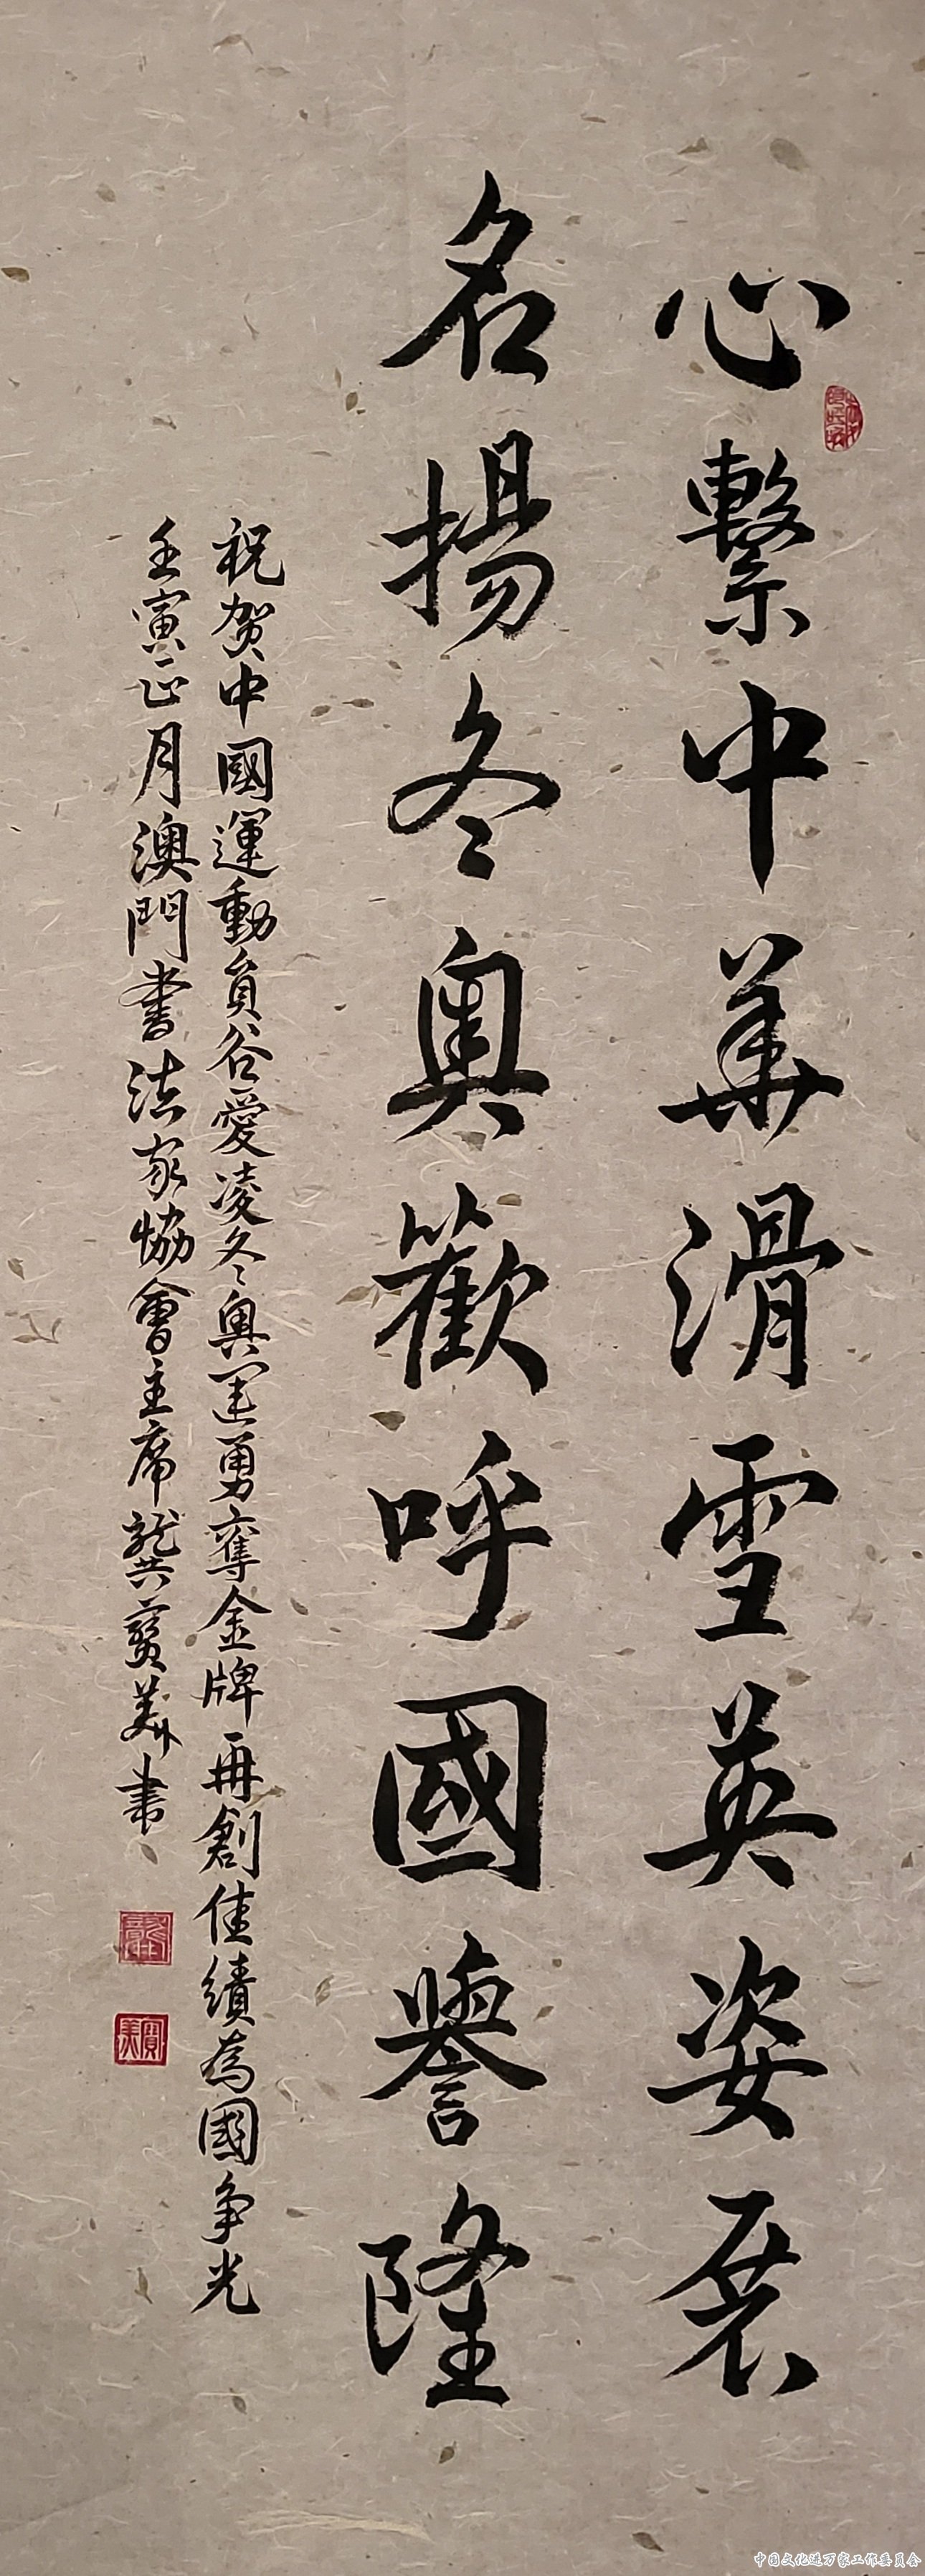 心繫中華滑雪英姿展
名揚冬奧歡呼國譽隆
祝贺中國運動員谷愛凌冬奧運勇奪金牌再創佳績為國争光
壬寅正月澳門書法家協會主席龔寶美書
寶美
中国文化进万家工作委员会